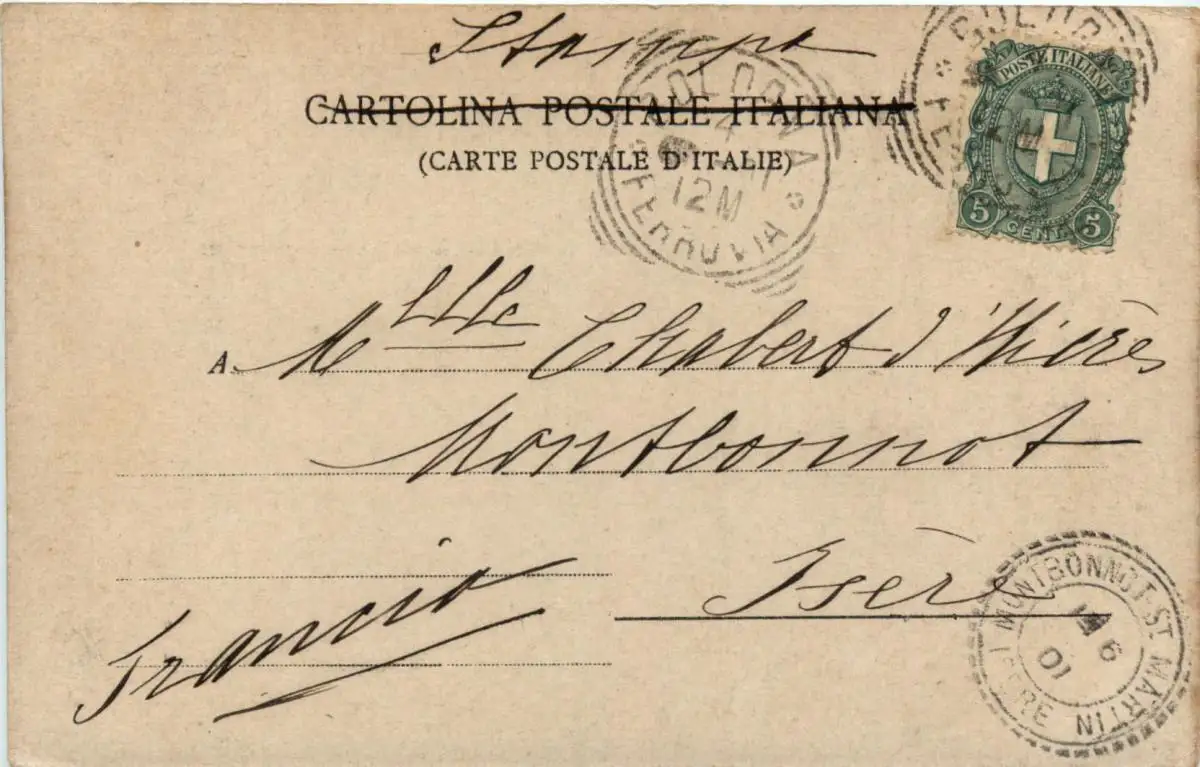 Stampe
CARTOLINA POSTALE ITALIANA
(CARTE POSTALE D'ITALIE)
BOLOGNA
4
12M
FERROVIA
POSTE ITALIANE
5 CENT. 5
A Mlle Chabert d'Hières
Montbonnot
Isère
Francia
MONTBONNOT-ST MARTIN
6
01
ISERE